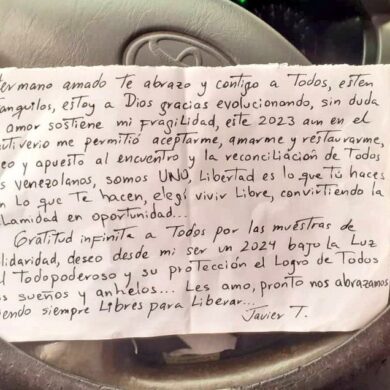 ermano amado te abrazo y contigo a Todos, esten
anquilos, estoy a Dios gracias evolucionando, sin duda
amor sostiene mi fragilidad, este 2023 aun en el
utiverio me permitió aceptarme, amarme y restaurarme,
eo y apuesto al encuentro y la reconciliación de Todos
s venezolanos, somos UNO, Libertad es lo que tú haces
n Lo que Te hacen, elegí vivir Libre, convirtiendo la
lamidad en oportunidad...
Gratitud infinita a Todos por las muestras de
lidaridad, deseo desde mi ser un 2024 bajo la Luz
l Todopoderoso y su protección el Logro de Todos
os sueños y anhelos... Les amo, pronto nos abrazamos
endo siempre Libres para Liberar...
Javier T.